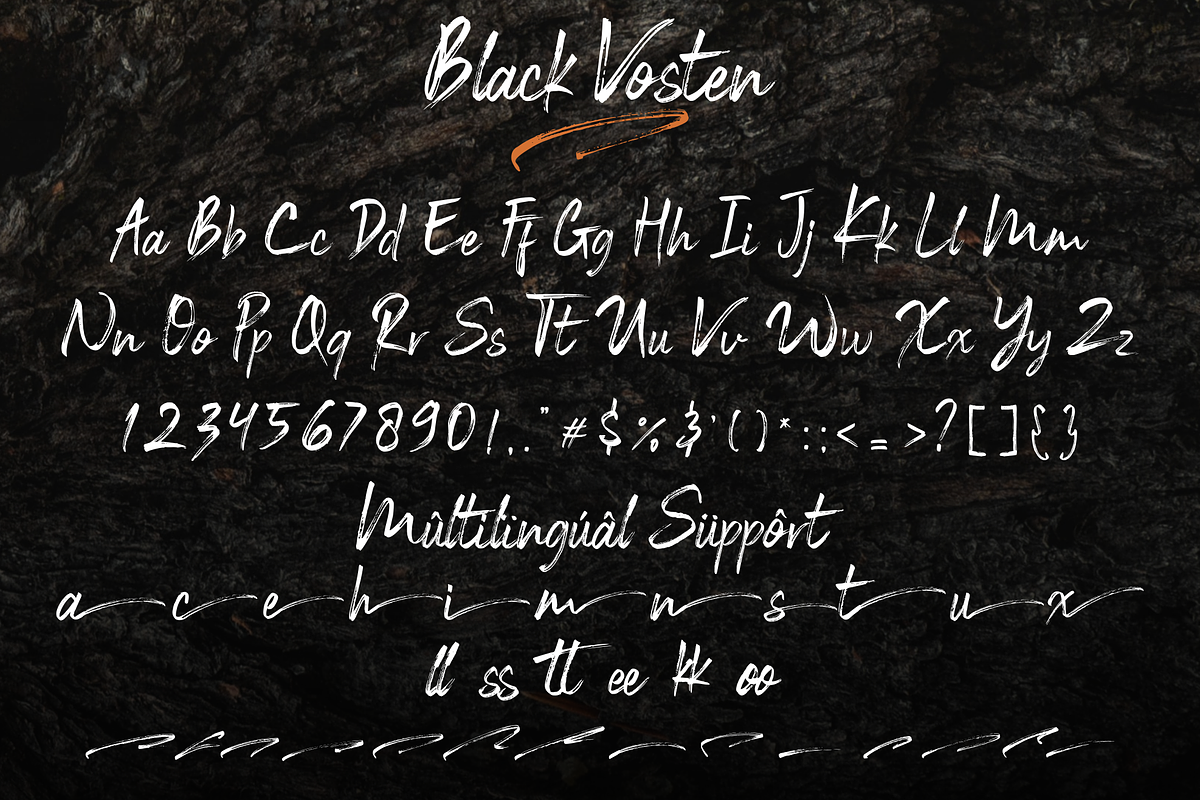 Black Vosten
Aa Bb Cc Dd Ee Ff Gg Hh Ii Jj Kk Ll Mm
Nn Oo Pp Qq Rr Ss Tt Uu Vv Ww Xx Yy Zz
1234567890!,." #$%&'()*:;<=>?[]{}
Múltilïngúâl Süppôrt
a c e h i m n s t u x
ll ss tt ee kk oo